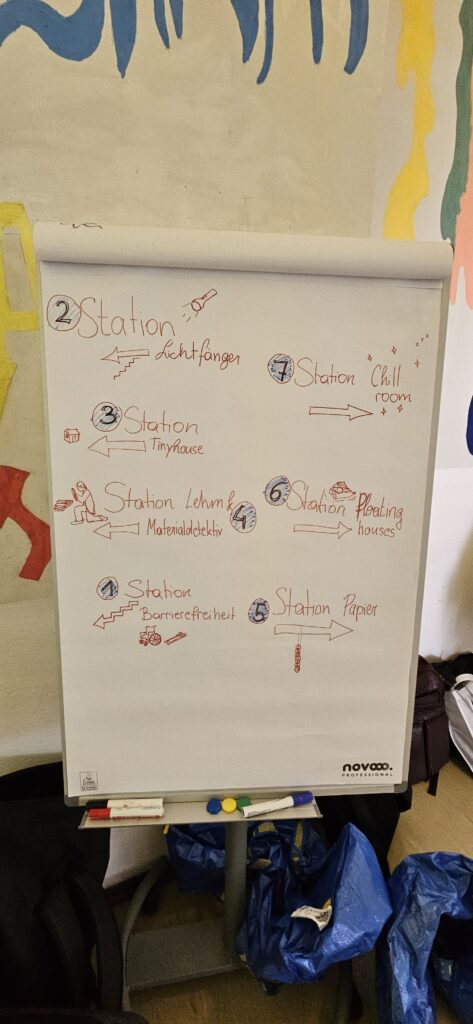 2 Station
Lichtfänger
3 Station
Tinyhouse
Station Lehm & 4
Materialdetektiv
1 Station
Barrierefreiheit
7 Station Chill
room
zzz
6 Station Floating
houses
5 Station Papier
novooo.
PROFESSIONAL